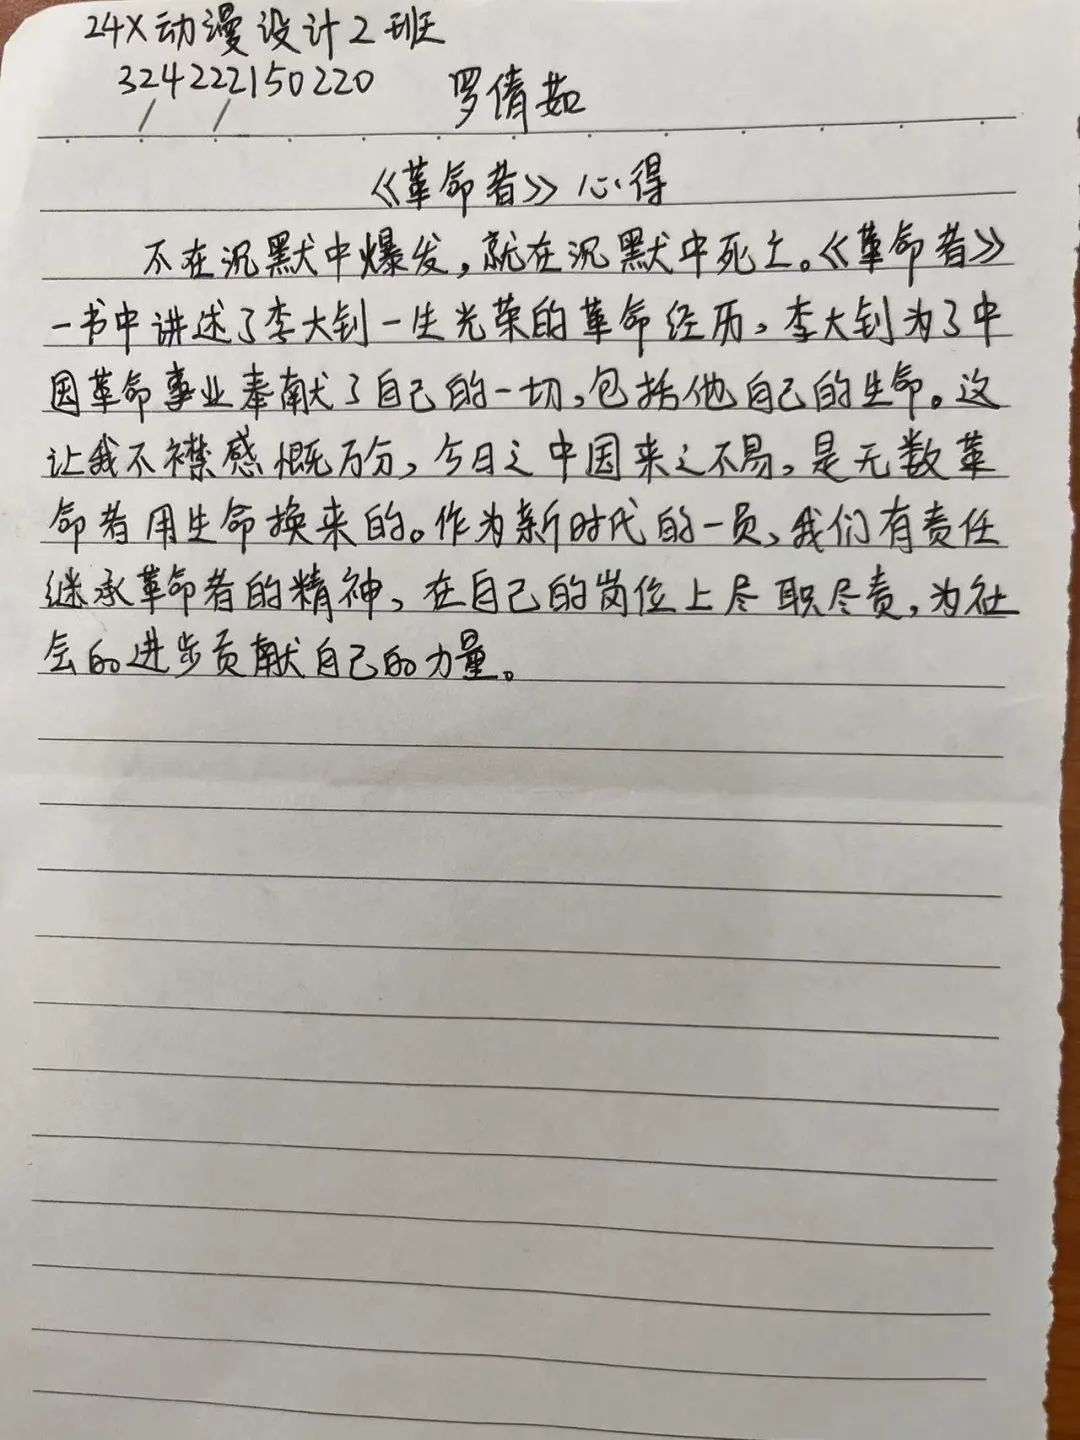 24X动漫设计2班
324222150220 罗倩茹
《革命者》心得
不在沉默中爆发,就在沉默中死亡。《革命者》
一书中讲述了李大钊一生光荣的革命经历,李大钊为了中
国革命事业奉献了自己的一切,包括他自己的生命。这
让我不襟感慨万分,今日之中国来之不易,是无数革
命者用生命换来的。作为新时代的一员,我们有责任
继承革命者的精神,在自己的岗位上尽职尽责,为社
会的进步贡献自己的力量。